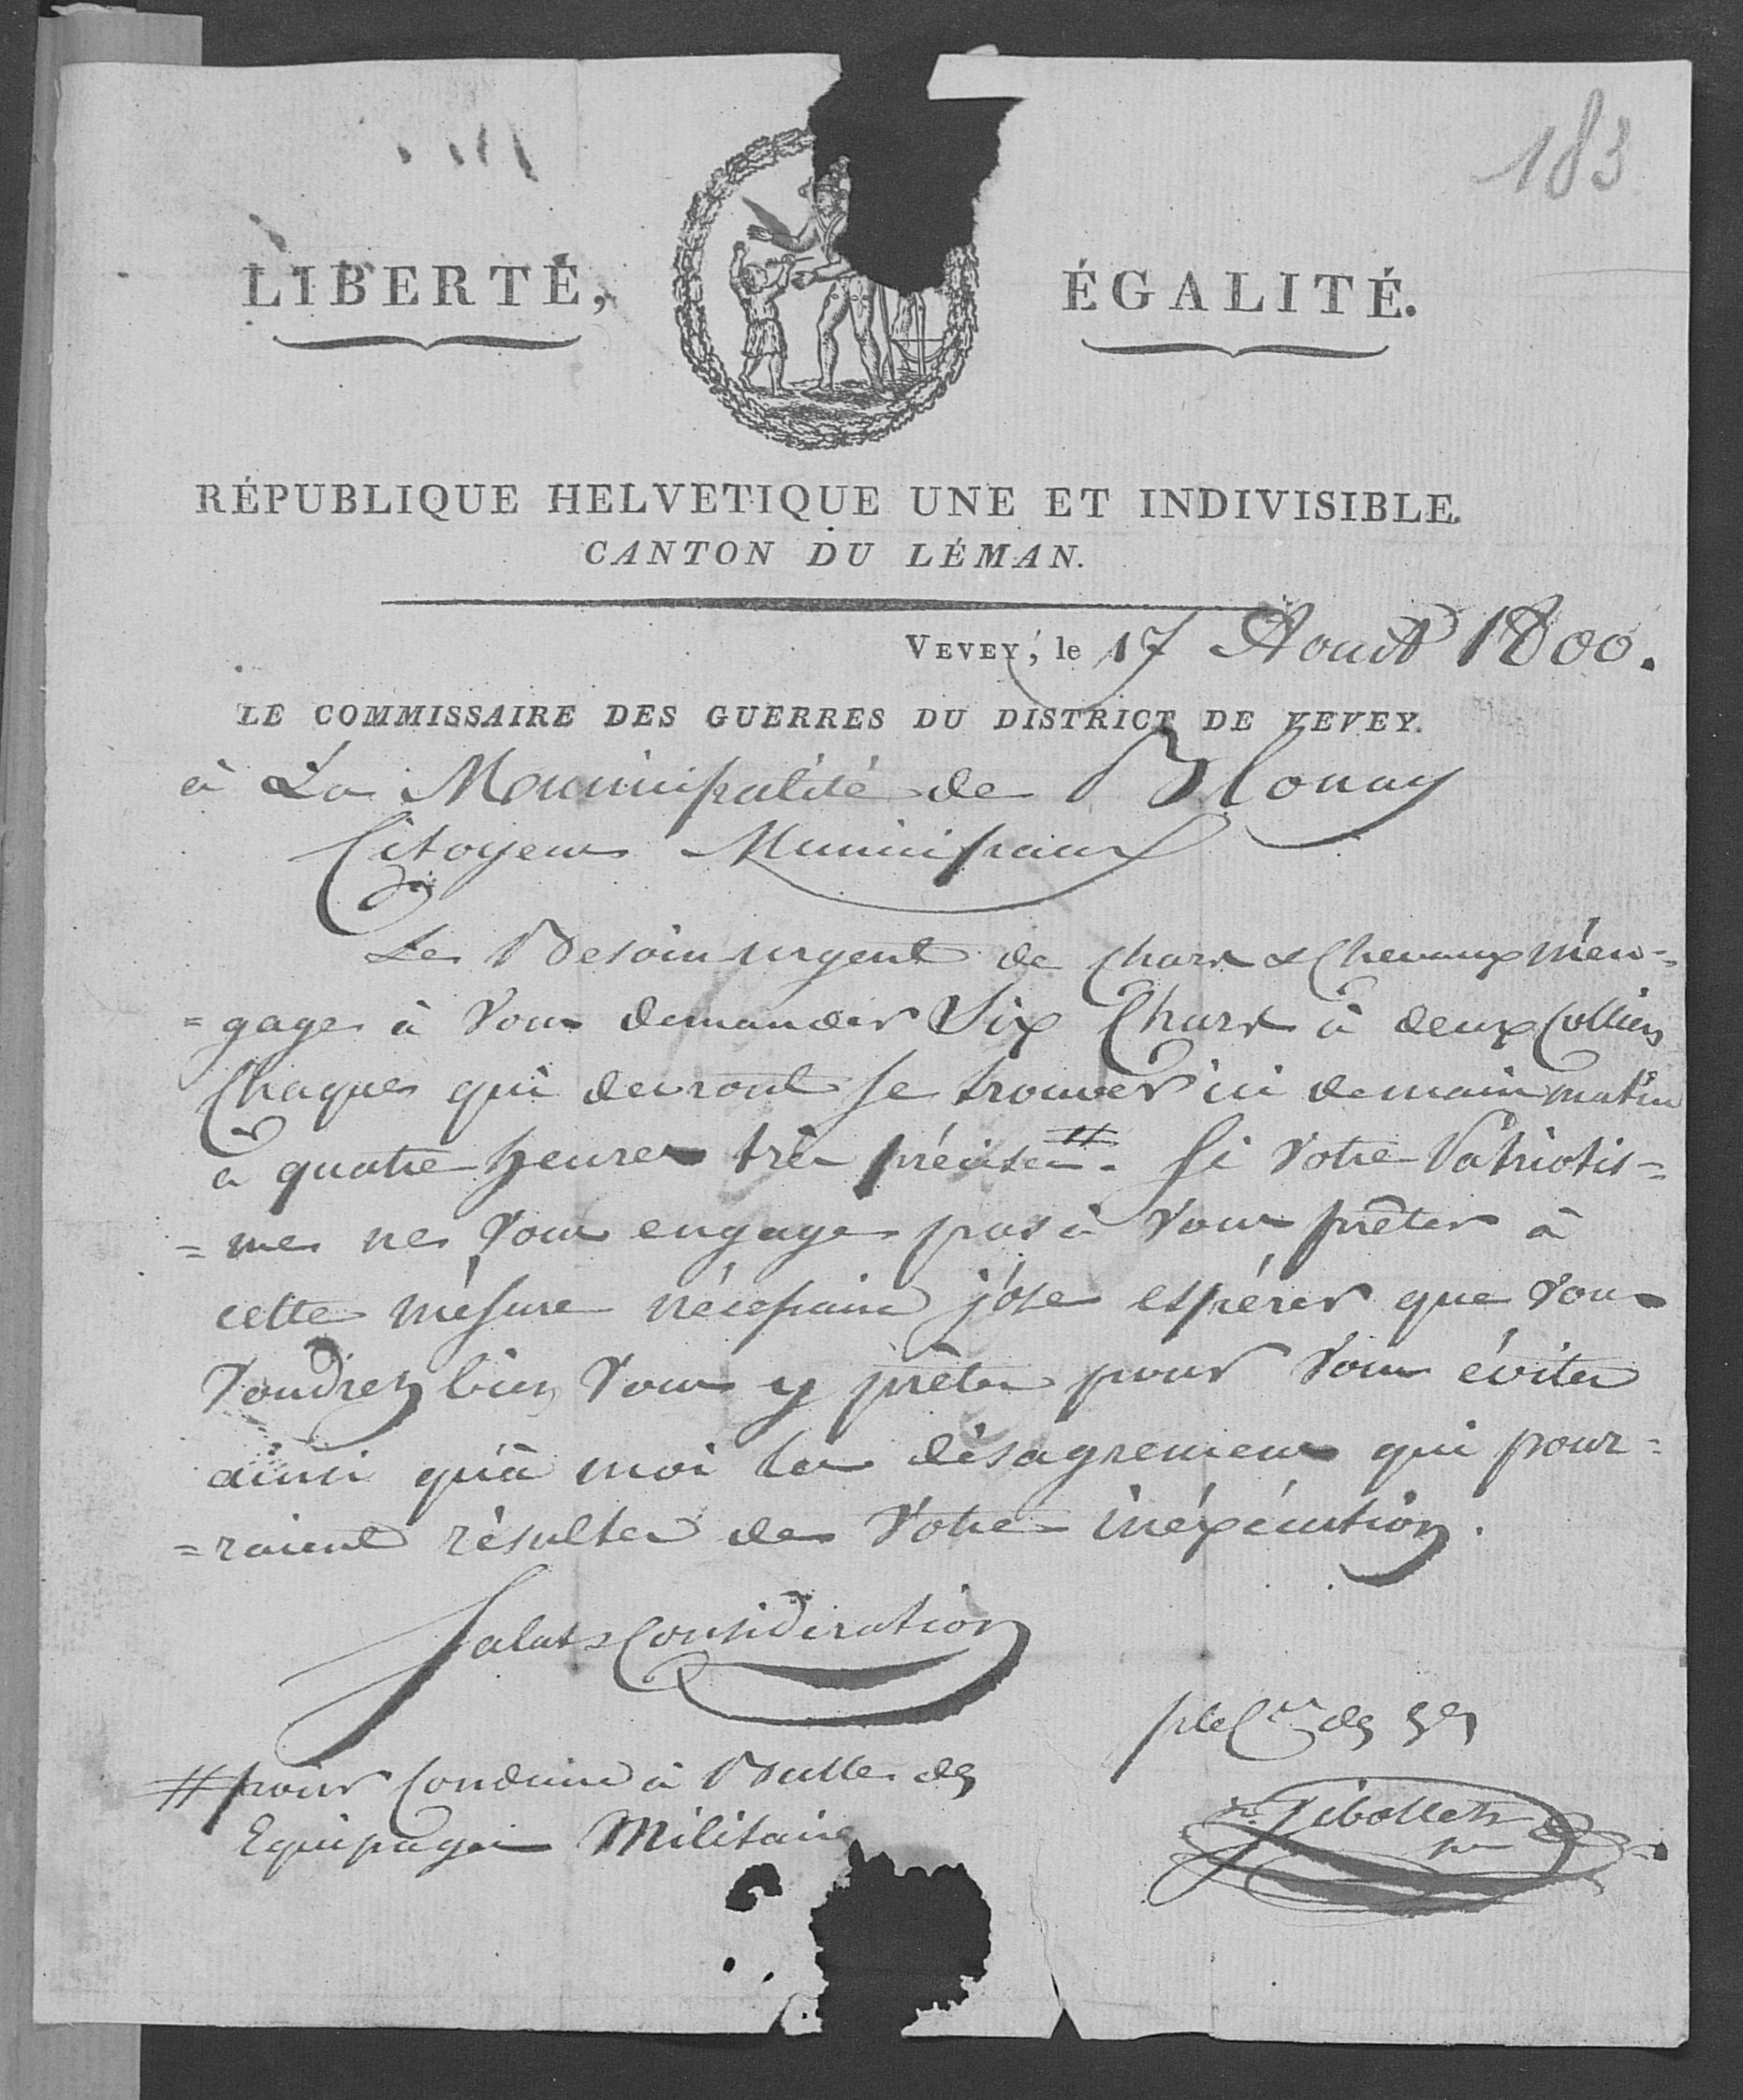 183
LIBERTÉ, ÉGALITÉ.
RÉPUBLIQUE HELVETIQUE UNE ET INDIVISIBLE.
CANTON DU LÉMAN.
VEVEY, le 17 Aoust 1800.
LE COMMISSAIRE DES GUERRES DU DISTRICT DE VEVEY.
à La Municipalité de Blonay
Citoyens Municipaux
Le Besoin urgent de Chars & Chevaux m'en-
=gage à Vous demander Six Chars à deux Colliers
Chaques qui devront se trouver ici demain matin
à quatre heures très précises #. Si Votre Patriotis=
=me ne Vous engage pas à Vous prêter à
cette mésure nécessaire j'ose espérer que Vous
Voudrez bien Vous y prêter pour Vous éviter
ainsi qu'à moi les désagremens qui pour=
=raient résulter de Votre inéxécution.
Salut & Considération
# pour Conduire à Bulle des
Equipages Militaires
ple Cre des Gs